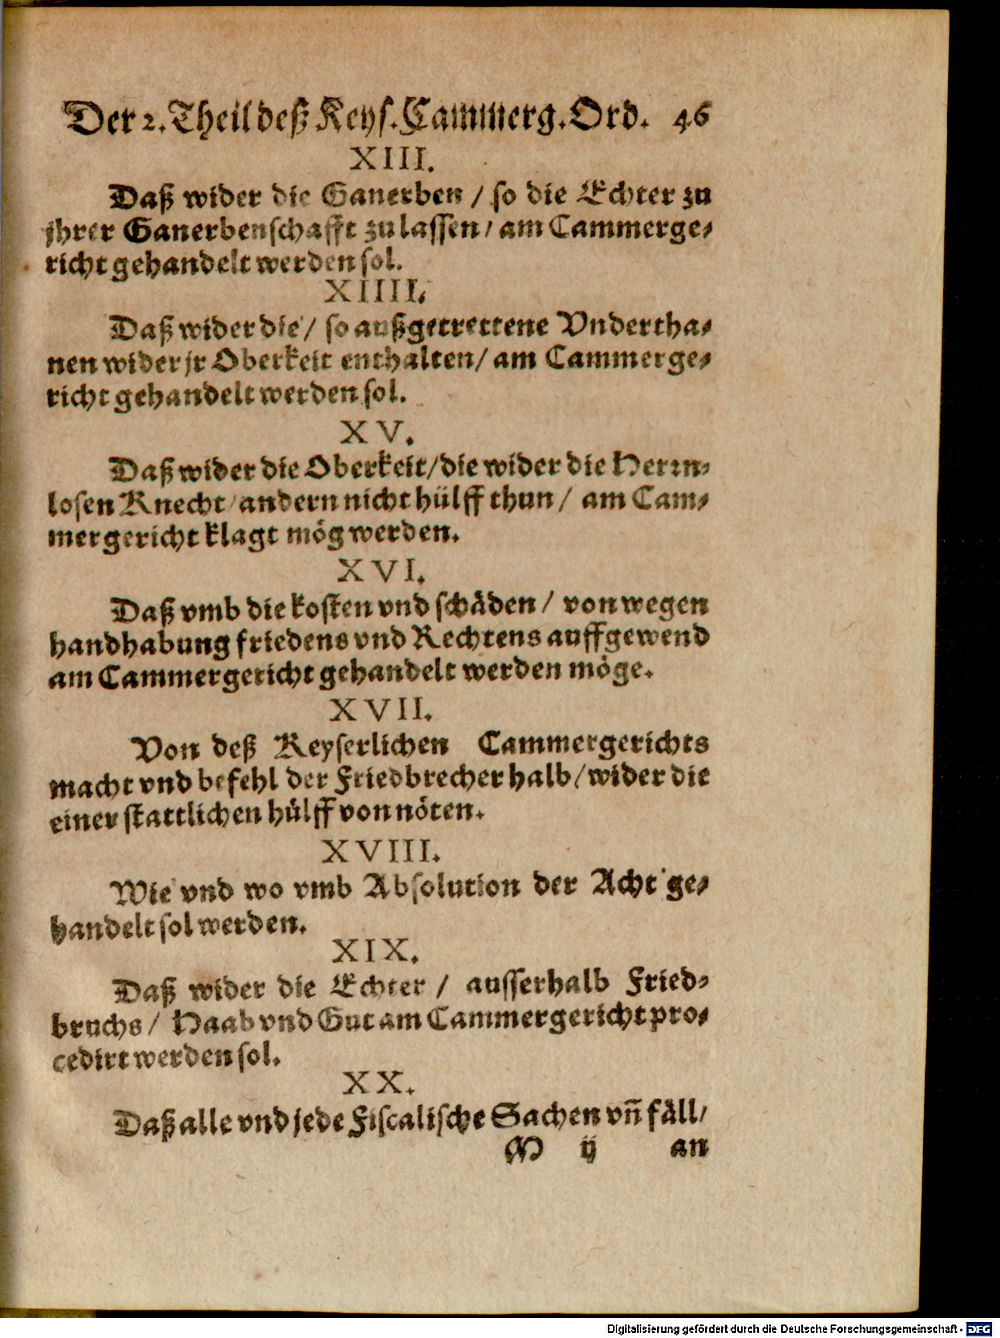 Der 2. Theil deß Keys. Cammerg. Ord. 46
XIII.
Daß wider die Ganerben / so die Echter zu
jhrer Ganerbenschafft zu lassen / am Cammerge-
richt gehandelt werden sol.
XIIII.
Daß wider die / so außgetrettene Vndertha-
nen wider jr Oberkeit enthalten / am Cammerge-
richt gehandelt werden sol.
XV.
Daß wider die Oberkeit / die wider die Herrn-
losen Knecht / andern nicht hülff thun / am Cam-
mergericht klagt mög werden.
XVI.
Daß vmb die kosten vnd schäden / von wegen
handhabung friedens vnd Rechtens auffgewend
am Cammergericht gehandelt werden möge.
XVII.
Von deß Keyserlichen Cammergerichts
macht vnd befehl der Friedbrecher halb / wider die
einer stattlichen hülff von nöten.
XVIII.
Wie vnd wo vmb Absolution der Acht ge-
handelt sol werden.
XIX.
Daß wider die Echter / ausserhalb Fried-
bruchs / Haab vnd Gut am Cammergericht pro-
cedirt werden sol.
XX.
Daß alle vnd jede Fiscalische Sachen vñ fäll /
M ij an
Digitalisierung gefördert durch die Deutsche Forschungsgemeinschaft - DFG